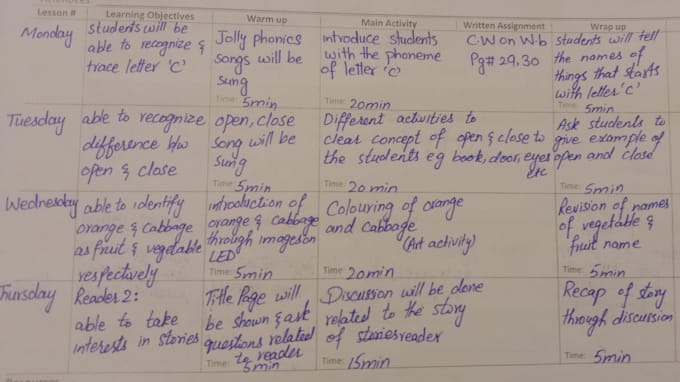 Lesson # Learning Objectives Warm up Main Activity Written Assignment Wrap up
Monday
students will be
able to recognize &
trace letter 'C'
Jolly phonics
songs will be
sung
Time: 5min
introduce students
with the phoneme
of letter 'C'
Time: 20min
C.W on W.b
Pg# 29,30
students will tell
the names of
things that starts
with letter 'C'
5min
Tuesday
able to recognize
difference b/w
open & close
open, close
song will be
sung
5min
Different activities to
clear concept of open & close to
the students eg book, door, eyes
etc
Time: 20 min
Ask students to
give example of
open and close
Time: 5min
Wednesday
able to identify
orange & cabbage
as fruit & vegetable
respectively
introduction of
orange & cabbage
through images on
LED
Time: 5min
Colouring of orange
and cabbage
(Art activity)
Time: 20min
Revision of names
of vegetable &
fruit name
Time: 5min
Thursday
Reader 2:
able to take
interests in stories
Title Page will
be shown & ask
questions related
to reader
Time: 5min
Discussion will be done
related to the story
of stories reader
Time: 15min
Recap of story
through discussion
Time: 5min